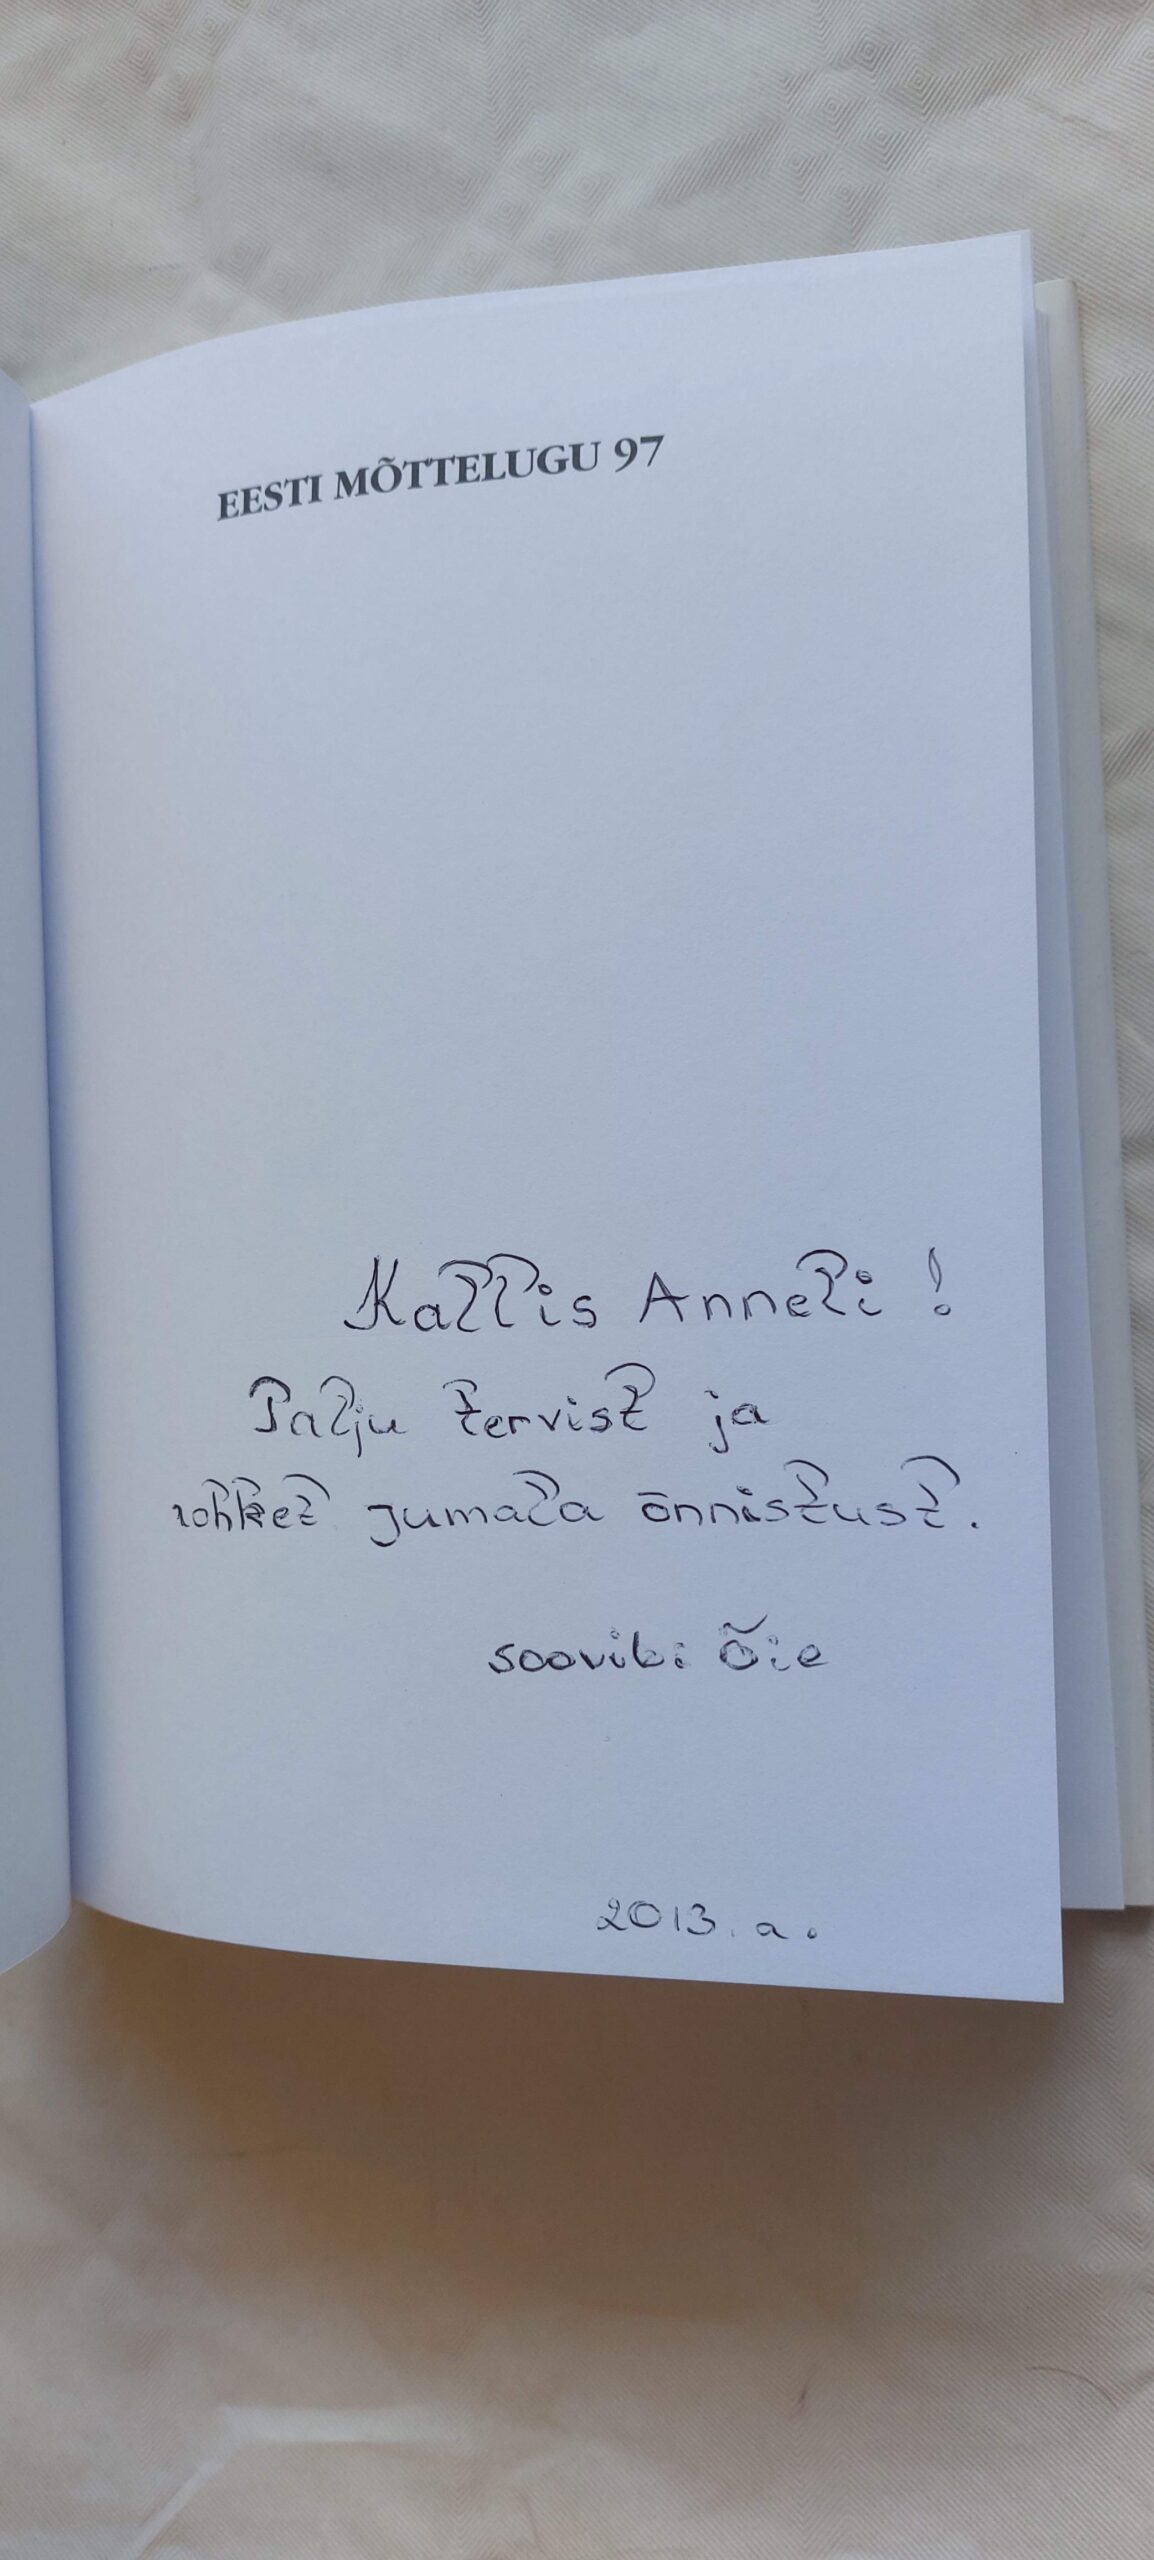 EESTI MÕTTELUGU 97
Kallis Anneli!
Palju tervist ja
rohket jumala õnnistust.
soovib: Õie
2013. a.